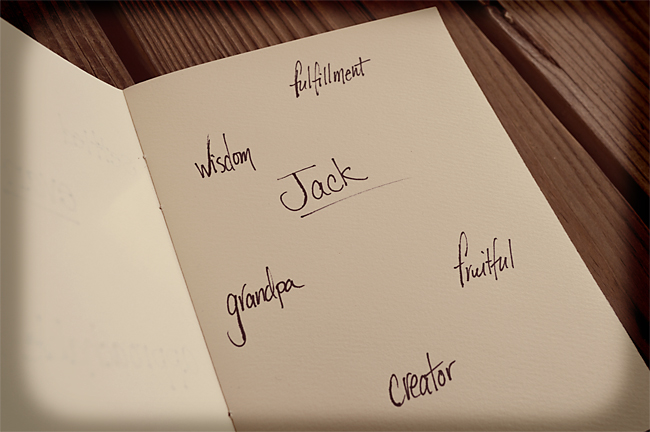 fulfillment
wisdom
Jack
fruitful
grandpa
creator